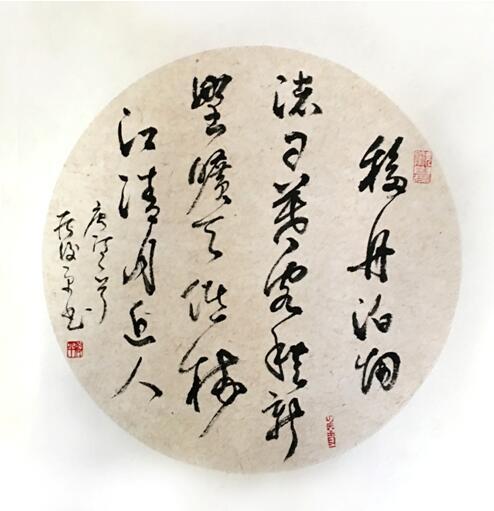 移舟泊烟
渚日暮客愁新
野曠天低树
江清月近人
唐诗一首
书